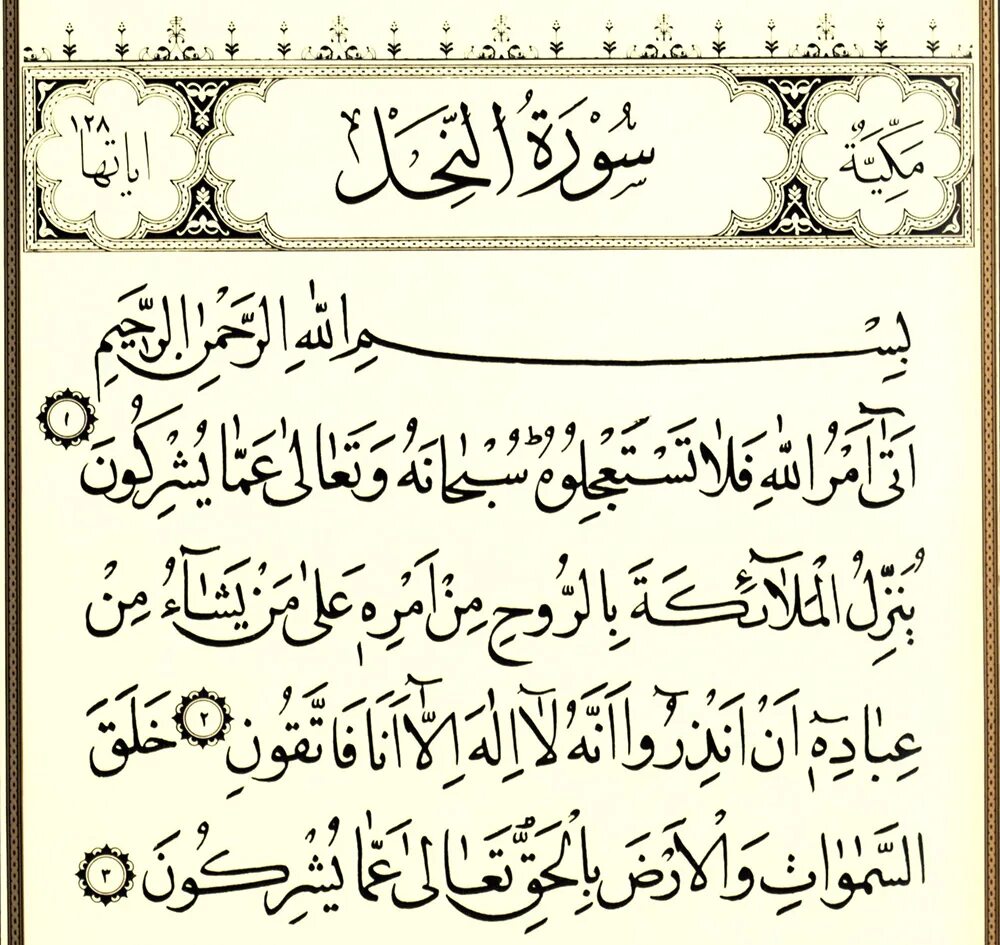 مَكِّيَّةٌ
سُورَةُ النَّحْلِ
اٰيَاتُهَا ١٢٨
بِسْمِ اللّٰهِ الرَّحْمٰنِ الرَّحٖيمِ
اَتٰٓى اَمْرُ اللّٰهِ فَلَا تَسْتَعْجِلُوهُۜ سُبْحَانَهُ وَتَعَالٰى عَمَّا يُشْرِكُونَ ١
يُنَزِّلُ الْمَلٰٓائِكَةَ بِالرُّوحِ مِنْ اَمْرِهٖ عَلٰى مَنْ يَشَٓاءُ مِنْ
عِبَادِهٖٓ اَنْ اَنْذِرُٓوا اَنَّهُ لَٓا اِلٰهَ اِلَّٓا اَنَا۬ فَاتَّقُونِ ٢ خَلَقَ
السَّمٰوَاتِ وَالْاَرْضَ بِالْحَقِّۜ تَعَالٰى عَمَّا يُشْرِكُونَ ٣